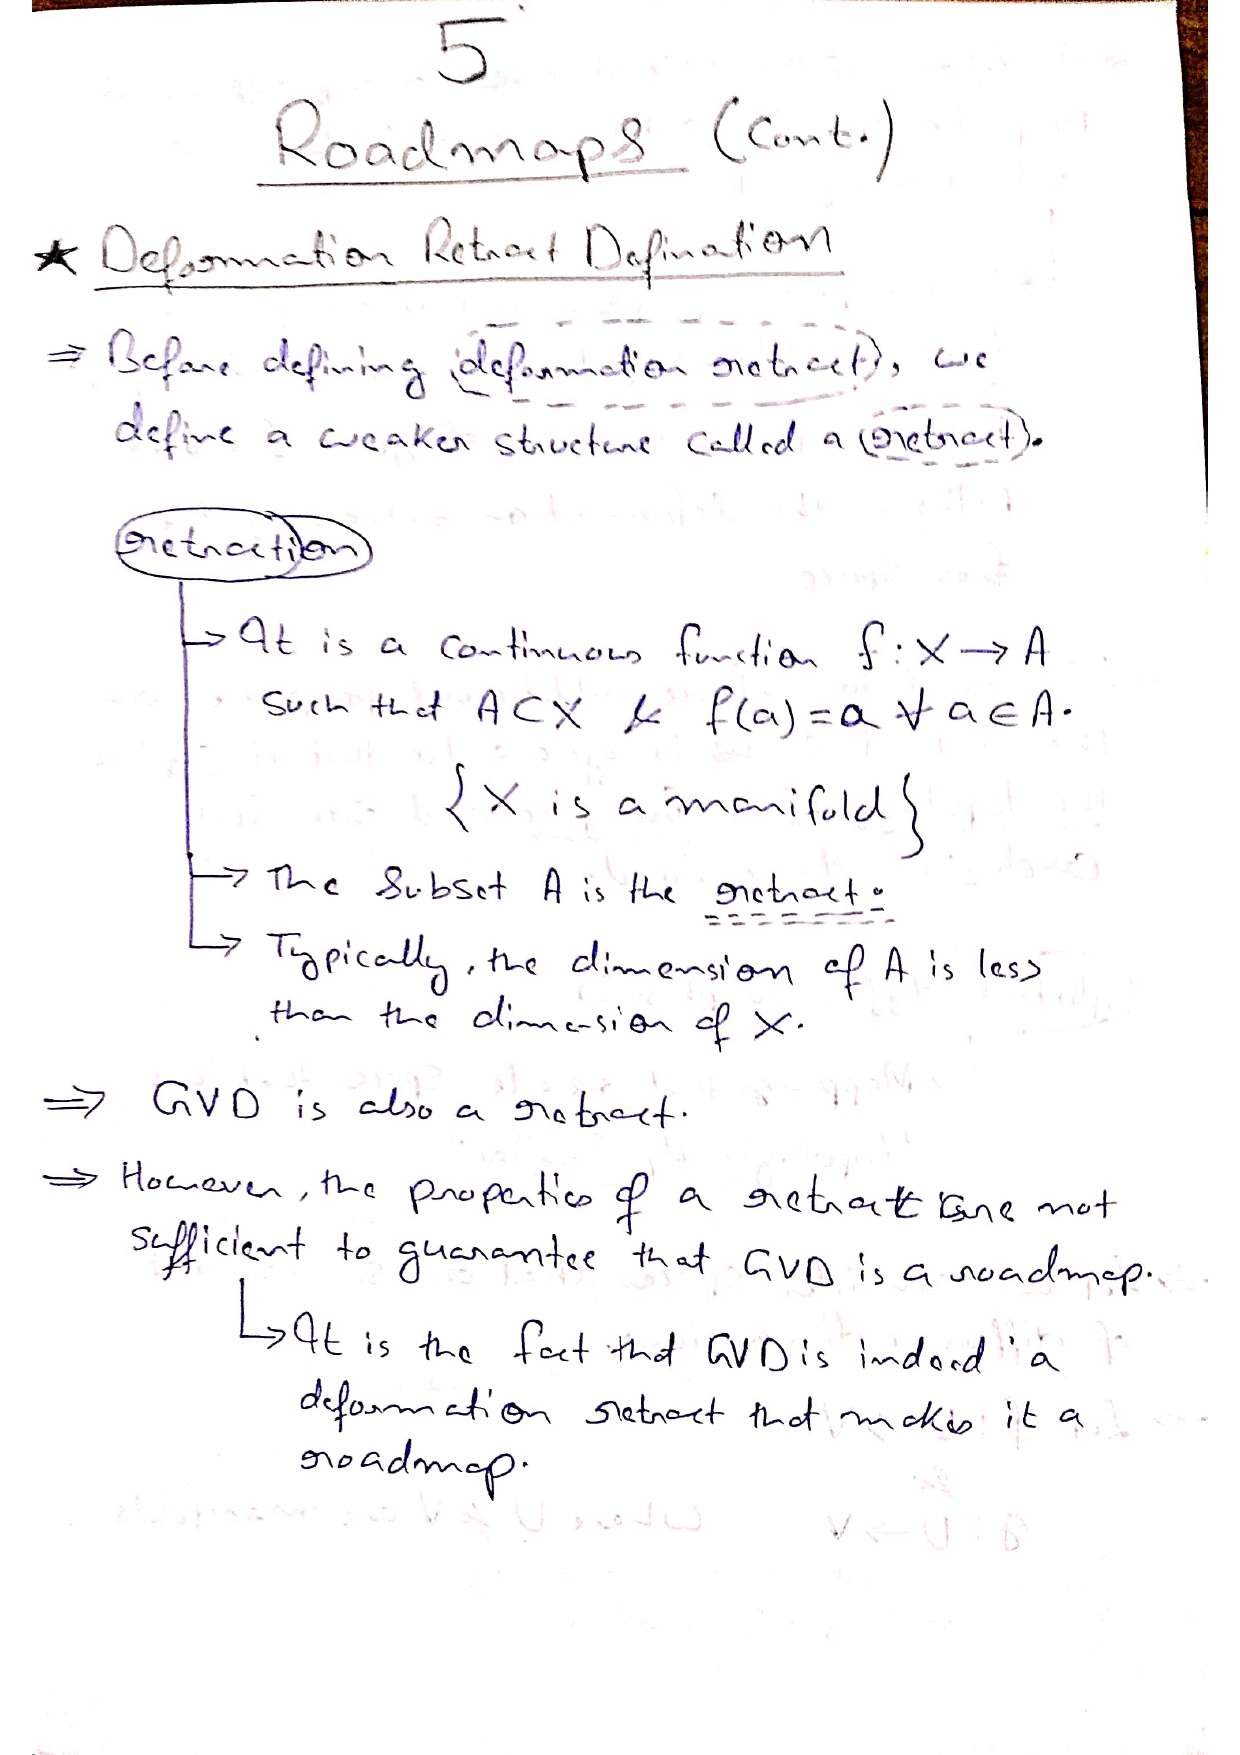 5
Roadmaps (Cont.)
★ Deformation Retract Defination
⇒ Before defining (deformation retract), we
define a weaker structure called a (retract).
retraction
→ It is a continuous function f : X → A
such that A ⊂ X & f(a) = a ∀ a ∈ A.
{X is a manifold}
→ The subset A is the retract.
→ Typically, the dimension of A is less
than the dimension of X.
⇒ GVD is also a retract.
⇒ However, the properties of a retract are not
sufficient to guarantee that GVD is a roadmap.
→ It is the fact that GVD is indeed a
deformation retract that makes it a
roadmap.